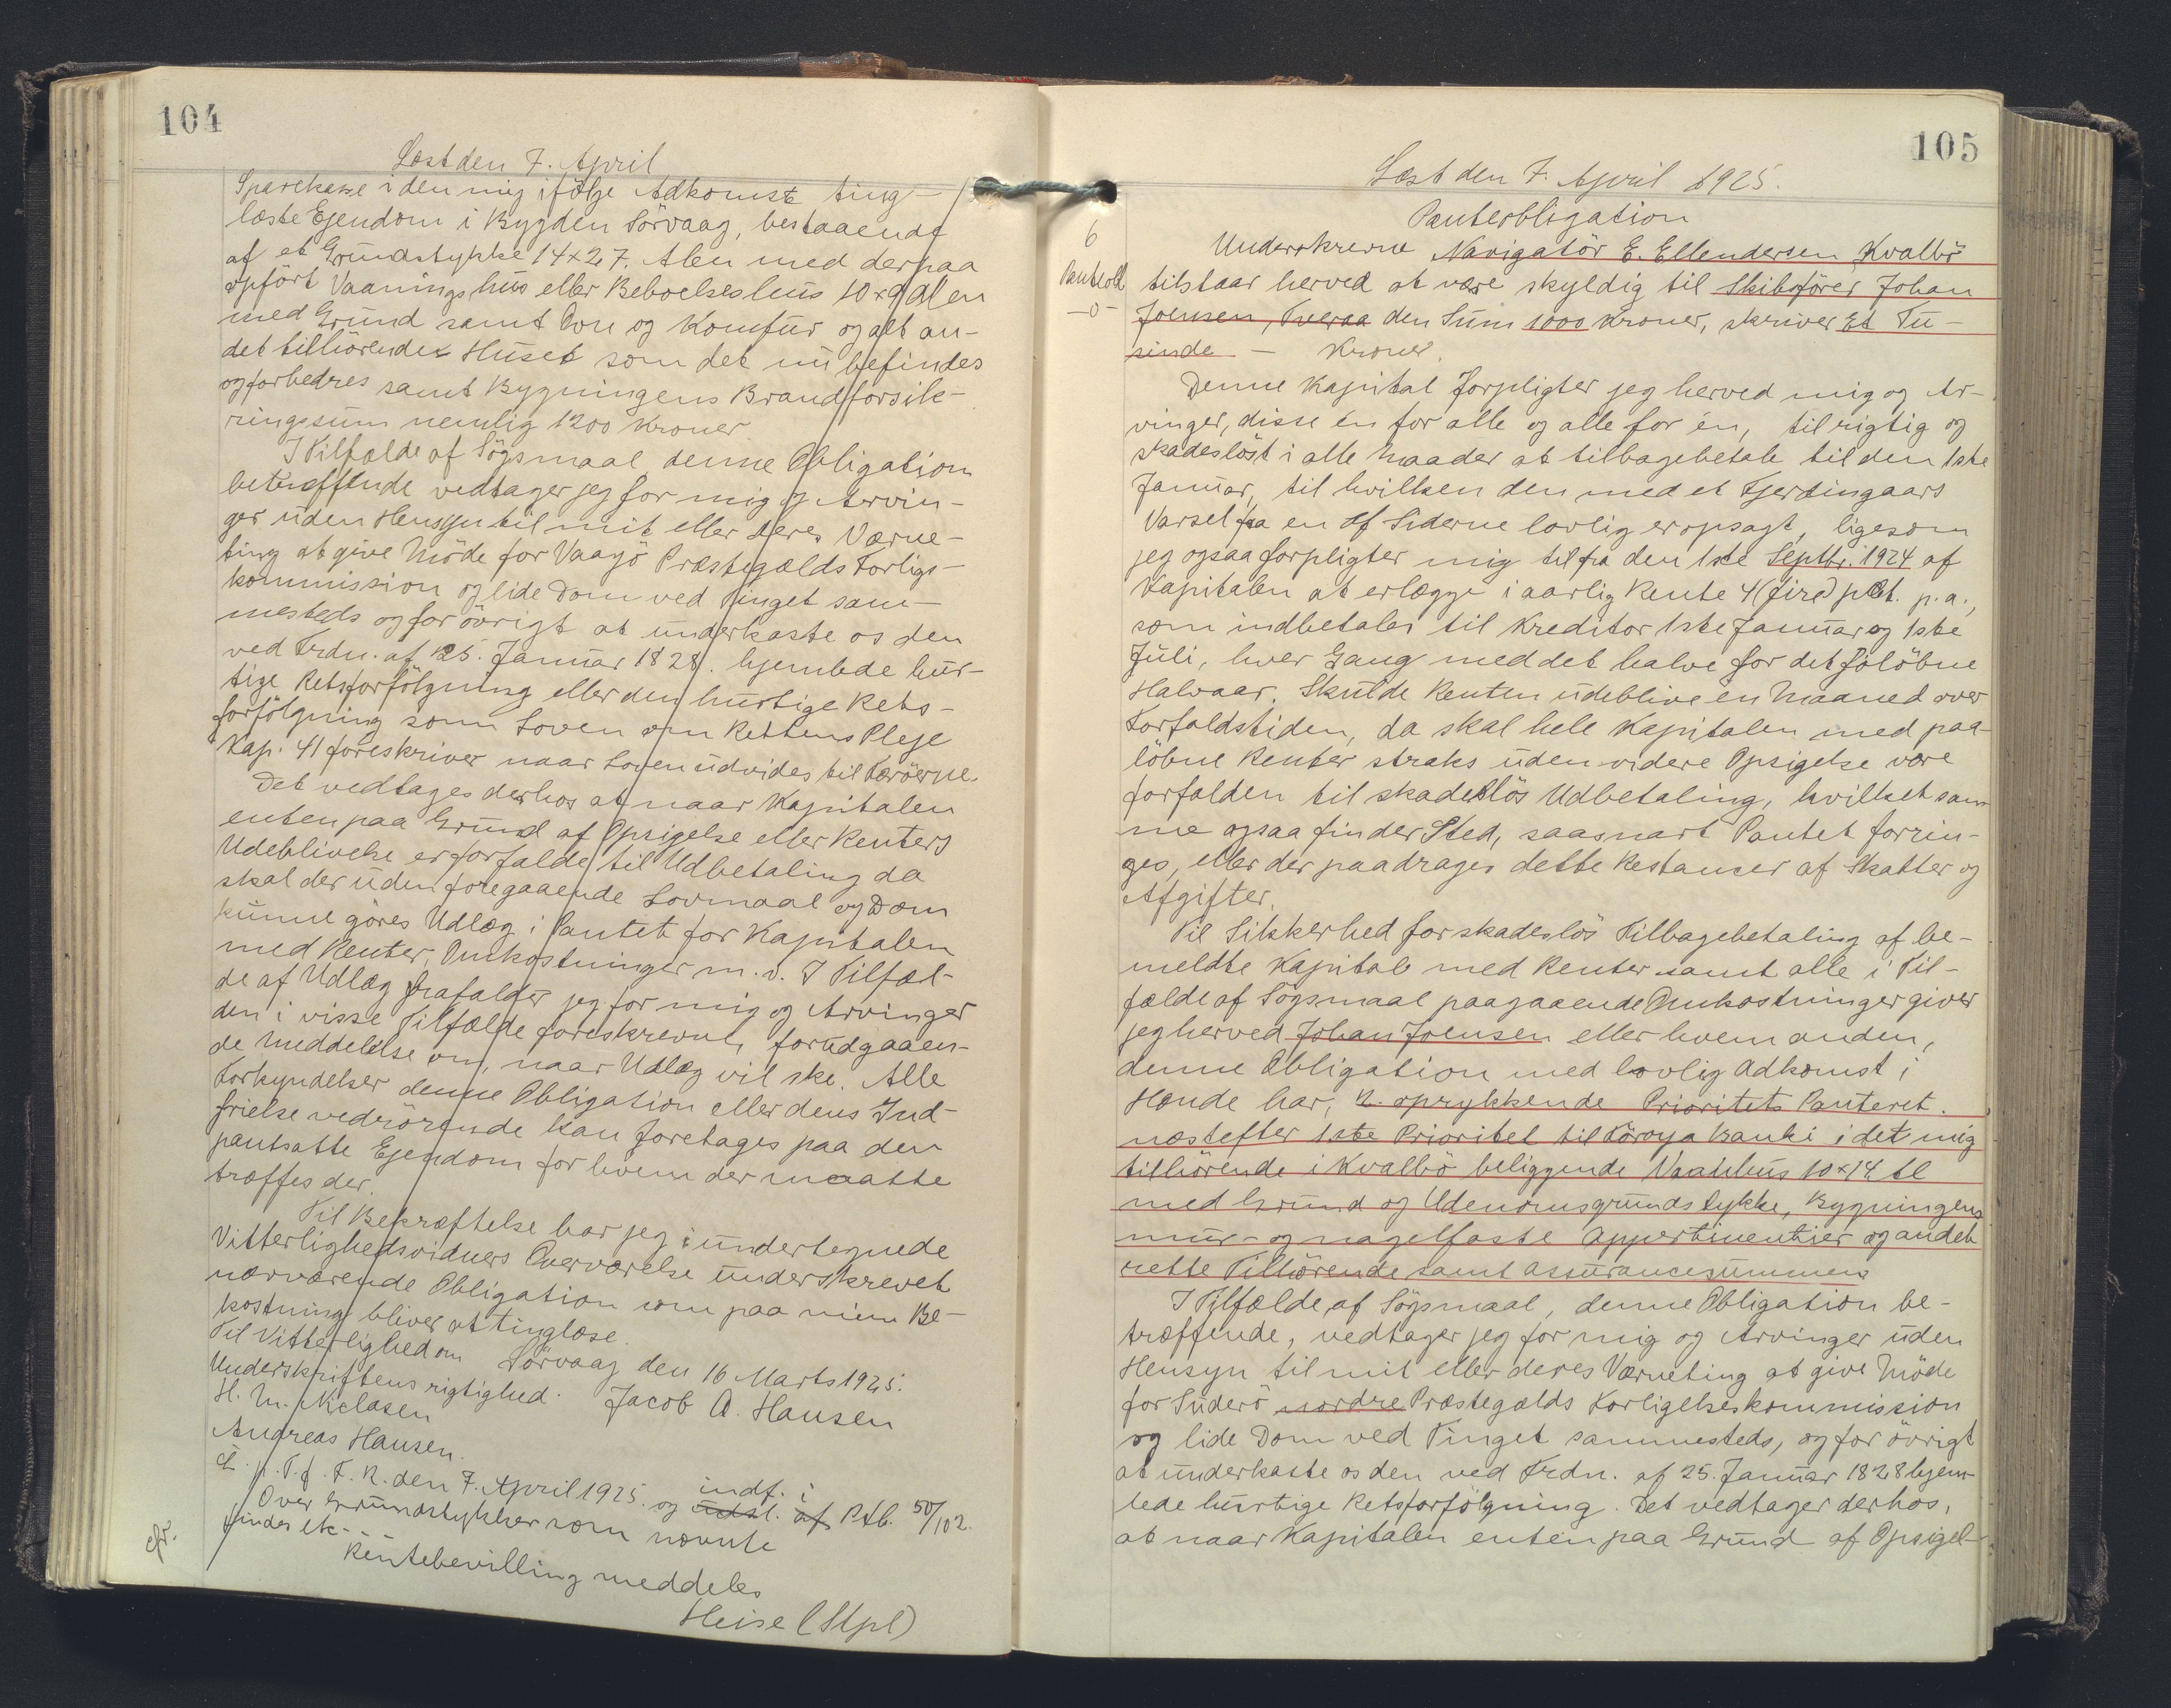 104
Læst den 7. April
Sparekasse i den mig ifølge Adkomst ting-
læste Ejendom i Bygden Sörvaag, bestaaende
af et Grundstykke 14×27. Alen med derpaa
opfört Vaaningshus eller Beboelseshus 10×9 Alen
med Grund samt Ovn og Komfur og alt an-
det tilhörende Huset som det nu befindes
og forbedres samt Bygningens Brandforsik-
ringssum nemlig 1200 Kroner
I Tilfælde af Sögsmaal denne Obligation
betræffende vedtager jeg for mig og Arvin-
ger uden Hensyn til mit eller deres Værne-
ting at give Möde for Vaagö Præstegælds Forligs-
kommission og lide Dom ved Tinget sam-
mesteds og for övrigt at underkaste os den
ved Frdn. af 25. Januar 1828. hjemlede hur-
tige Retsforfölgning eller den hurtige Rets-
forfölgning som Loven om Rettens Pleje
Kap. 41 foreskriver naar Loven udvides til Færöerne.
Det vedtages derhos at naar Kapitalen
enten paa Grund af Opsigelse eller Renters
Udeblivelse er forfalde til Udbetaling da
skal der uden foregaaende Lovmaal og Dom
kunne göres Udlæg i Pantet for Kapitalen
med Renter, Omkostninger m. v. I Tilfæl-
de af Udlæg frafalder jeg for mig og Arvinger
den i visse Tilfælde foreskrevne forudgaaen-
de Meddelelse om, naar Udlæg vil ske. Alle
Forkyndelser denne Obligation eller dens Ind-
frielse vedrörende kan foretages paa den
pantsatte Ejendom for hvem der maatte
træffes der.
Til Bekræftelse har jeg i undertegnede
Vitterlighedsvidners Overværelse underskrevet
nærværende Obligation som paa min Be-
kostning bliver at tinglæse.
Til Vitterlighed om Sörvaag den 16 Marts 1925.
Underskriftens rigtighed. Jacob A. Hansen
H. M. Niclasen
Andreas Hansen.
p. T. f. F. R. den 7. April 1925. og udsl. af indf. i Ptb. 50/102.
Over Grundstykker som nævnte
findes etc. ...
Rentebevilling meddeles
Heise (Stpl)
cfr.
105
Læst den 7. April 1925.
6
Pantobl
-0-
Panterbligation
Underskrevne Navigatör E. Ellendersen Kvalbö
tilstaar herved at være skyldig til Skibsförer Johan
Joensen, Tveraa den Sum 1000 Kroner, skriver Et Tu-
sinde - Kroner.
Denne Kapital forpligter jeg herved mig og Ar-
vinger, disse én for alle og alle for én, til rigtig og
skadeslöst i alle Maader at tilbagebetale til den 1ste
Januar, til hvilken den med et Fjerdingaars
Varsel fra en af Siderne lovlig er opsagt, ligesom
jeg ogsaa forpligter mig til fra den 1ste Septbr. 1924 af
Kapitalen at erlægge i aarlig Rente 4 (fire) pCt. p. a.,
som indbetales til Kreditor 1ste Januar og 1ste
Juli, hver Gang med det halve for det fölöbne
Halvaar. Skulde Renten udeblive én Maaned over
Forfaldstiden, da skal hele Kapitalen med paa-
löbne Renter straks uden videre Opsigelse være
forfalden til skadeslös Udbetaling, hvilket sam-
me ogsaa finder Sted, saasnart Pantet forrin-
ges, eller der paadrages dette Restancer af Skatter og
Afgifter.
Til Sikkerhed for skadeslös Tilbagebetaling af be-
meldte Kapital med Renter samt alle i Til-
fælde af Sögsmaal paagaaende Omkostninger giver
jeg herved Johan Joensen eller hvem anden,
denne Obligation med lovlig Adkomst i
Hænde har, 2. oprykkende Prioritets Panteret.
næstefter 1ste Prioritet til Föroya Banki i det mig
tilhörende i Kvalbö beliggende Vaanhus 10×14 al
med Grund og Udenomsgrundstykke, Bygningens
mur- og nagelfaste Appertinentier og andet
rette Tilhörende samt Assurancesummen
I Tilfælde af Sögsmaal, denne Obligation be-
træffende, vedtager jeg for mig og Arvinger uden
Hensyn til mit eller deres Værneting at give Möde
for Suderö nordre Præstegælds Forligelseskommission
og lide Dom ved Tinget sammesteds, og for övrigt
at underkaste os den ved Frdn. af 25. Januar 1828 hjem-
lede hurtige Retsforfölgning. Det vedtager derhos,
at naar Kapitalen enten paa Grund af Opsigel-